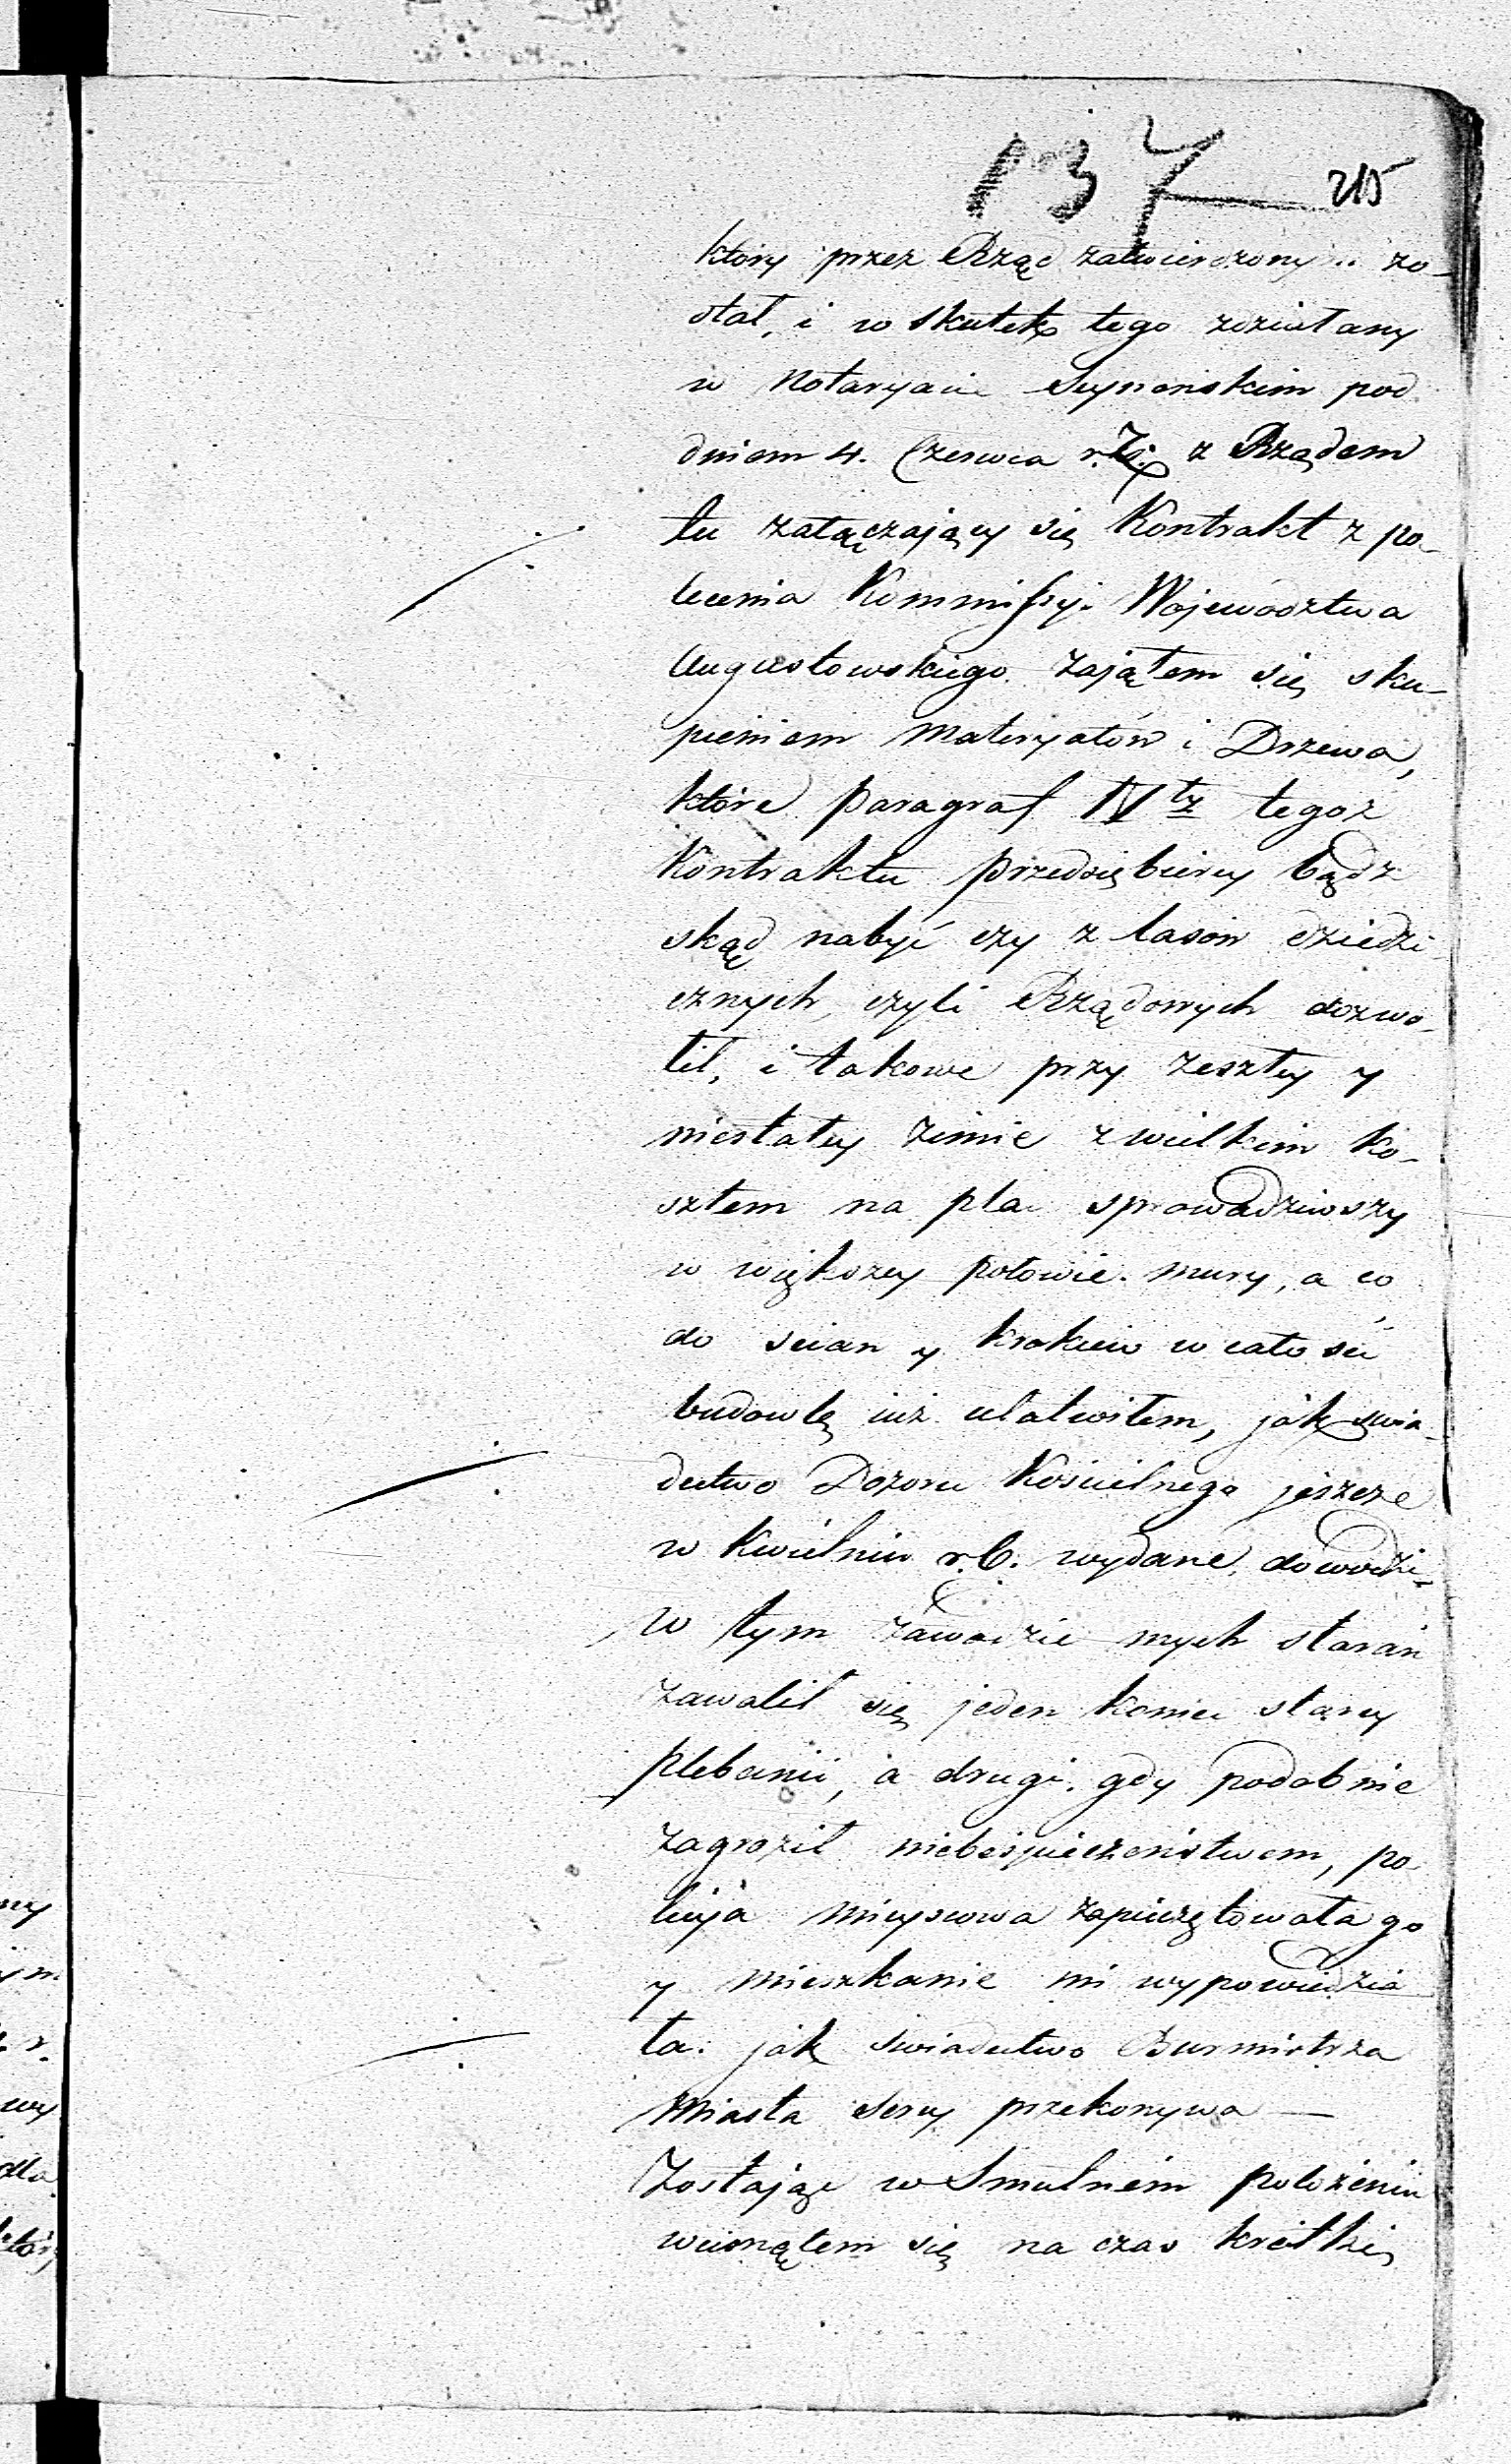 137 215
który przez Rząd zatwierdzony zo-
stał, i w skutek tego zdziałany
w Notaryacie Seyneńskim pod
dniem 4. Czerwca r. z. z Rządem
tu załączający się Kontrakt z po-
lecenia Kommissyi Województwa
Augustowskiego. zająłem się sku-
pieniem Materyałów i Drzewa,
które Paragraf IV ty tegoż
Kontraktu Przedsiębiercy bądź
skąd nabyć czy z lasów dziedzi-
cznych, czyli Rządowych dozwo-
lił, i takowe przy zeszłey y
niestałey zimie z wielkim ko-
sztem na plac sprowadziwszy
w większey połowie. mury, a co
do scian y krokiew w całości
budowlę iuż ułatwiłem, jak swia-
dectwo Dozoru Kościelnego jeszcze
w Kwietniu r. b. wydane, dowodzi-
w tym zawodzie mych starań
zawalił się jeden koniec starey
plebanii, a drugi. gdy podobnie
zagroził niebespieczeństwem, po-
licyja mieyscowa zapieczętowała go
y mieszkanie mi wypowiedzia
ła. jak swiadectwo Burmistrza
Miasta Serey przekonywa —
Zostając w Smutnem położeniu
wcisnąłem się na czas krótki
my
ym
r.
wy
dla
któr